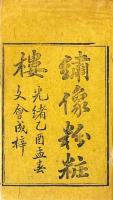 鏽像粉粧
樓
光緒乙酉孟春
文會成梓